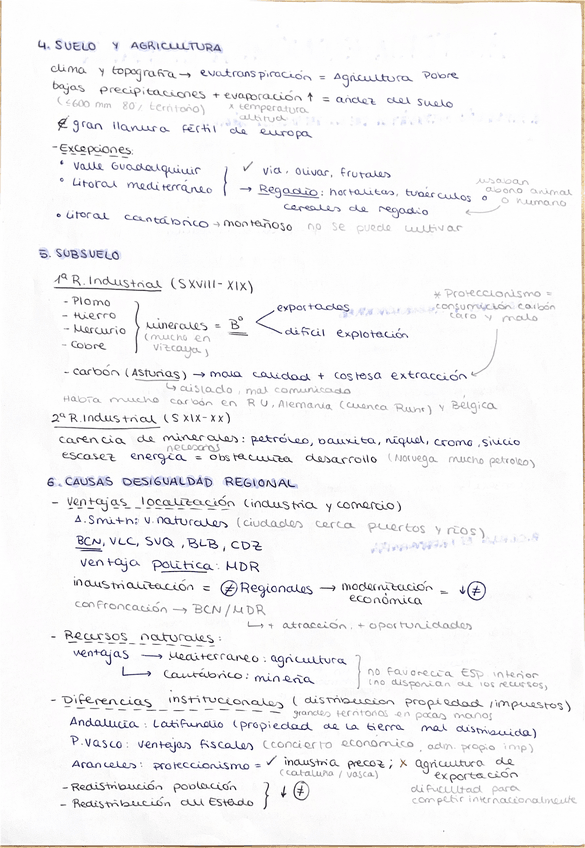 4. SUELO Y AGRICULTURA
clima y topografía → evatranspiración = Agricultura Pobre
bajas precipitaciones + evaporación ↑ = aridez del suelo
(≤600 mm 80% territorio) x temperatura altitud
∄ gran llanura fértil de europa
- Excepciones:
• Valle Guadalquivir ✓ vid, olivar, frutales
• Litoral mediterráneo → Regadío: hortalizas, tubérculos o cereales de regadio
usaban abono animal o humano
• Litoral cantábrico → montañoso no se puede cultivar
5. SUBSUELO
1ª R. Industrial (SXVIII - XIX)
- Plomo
- Hierro
- Mercurio
- Cobre
minerales = Bº
(mucho en Vizcaya)
exportados
difícil explotación
* Proteccionismo = consumición carbón caro y malo
- carbón (Asturias) → mala calidad + costosa extracción
↳ aislado, mal comunicado
Había mucho carbón en R.U, Alemania (cuenca Ruhr) y Bélgica
2ª R. Industrial (S XIX - XX)
carencia de minerales: petróleo, bauxita, níquel, cromo, silicio
necesarios
escasez energía = obstaculiza desarrollo (Noruega mucho petroleo)
6. CAUSAS DESIGUALDAD REGIONAL
- Ventajas localización (industria y comercio)
A. Smith: v. naturales (ciudades cerca puertos y ríos)
BCN, VLC, SVQ, BLB, CDZ
ventaja política: MDR
industrialización = ≠ Regionales → modernización económica = ↓ ≠
confroncación → BCN/MDR
↳ + atracción, + oportunidades
- Recursos naturales:
ventajas → Mediterraneo: agricultura
↳ Cantábrico: minería
no favorecía ESP interior (no disponían de los recursos)
- Diferencias institucionales (distribución propiedad /impuestos)
grandes territorios en pocas manos
Andalucía: Latifundio (propiedad de la tierra mal distribuida)
P. Vasco: ventajas fiscales (concierto económico, adm. propio imp)
Aranceles: proteccionismo = ✓ industria precoz; x agricultura de exportación
(cataluña / vasca)
dificultad para competir internacionalmente
- Redistribución población
- Redistribución del Estado
↓ ≠